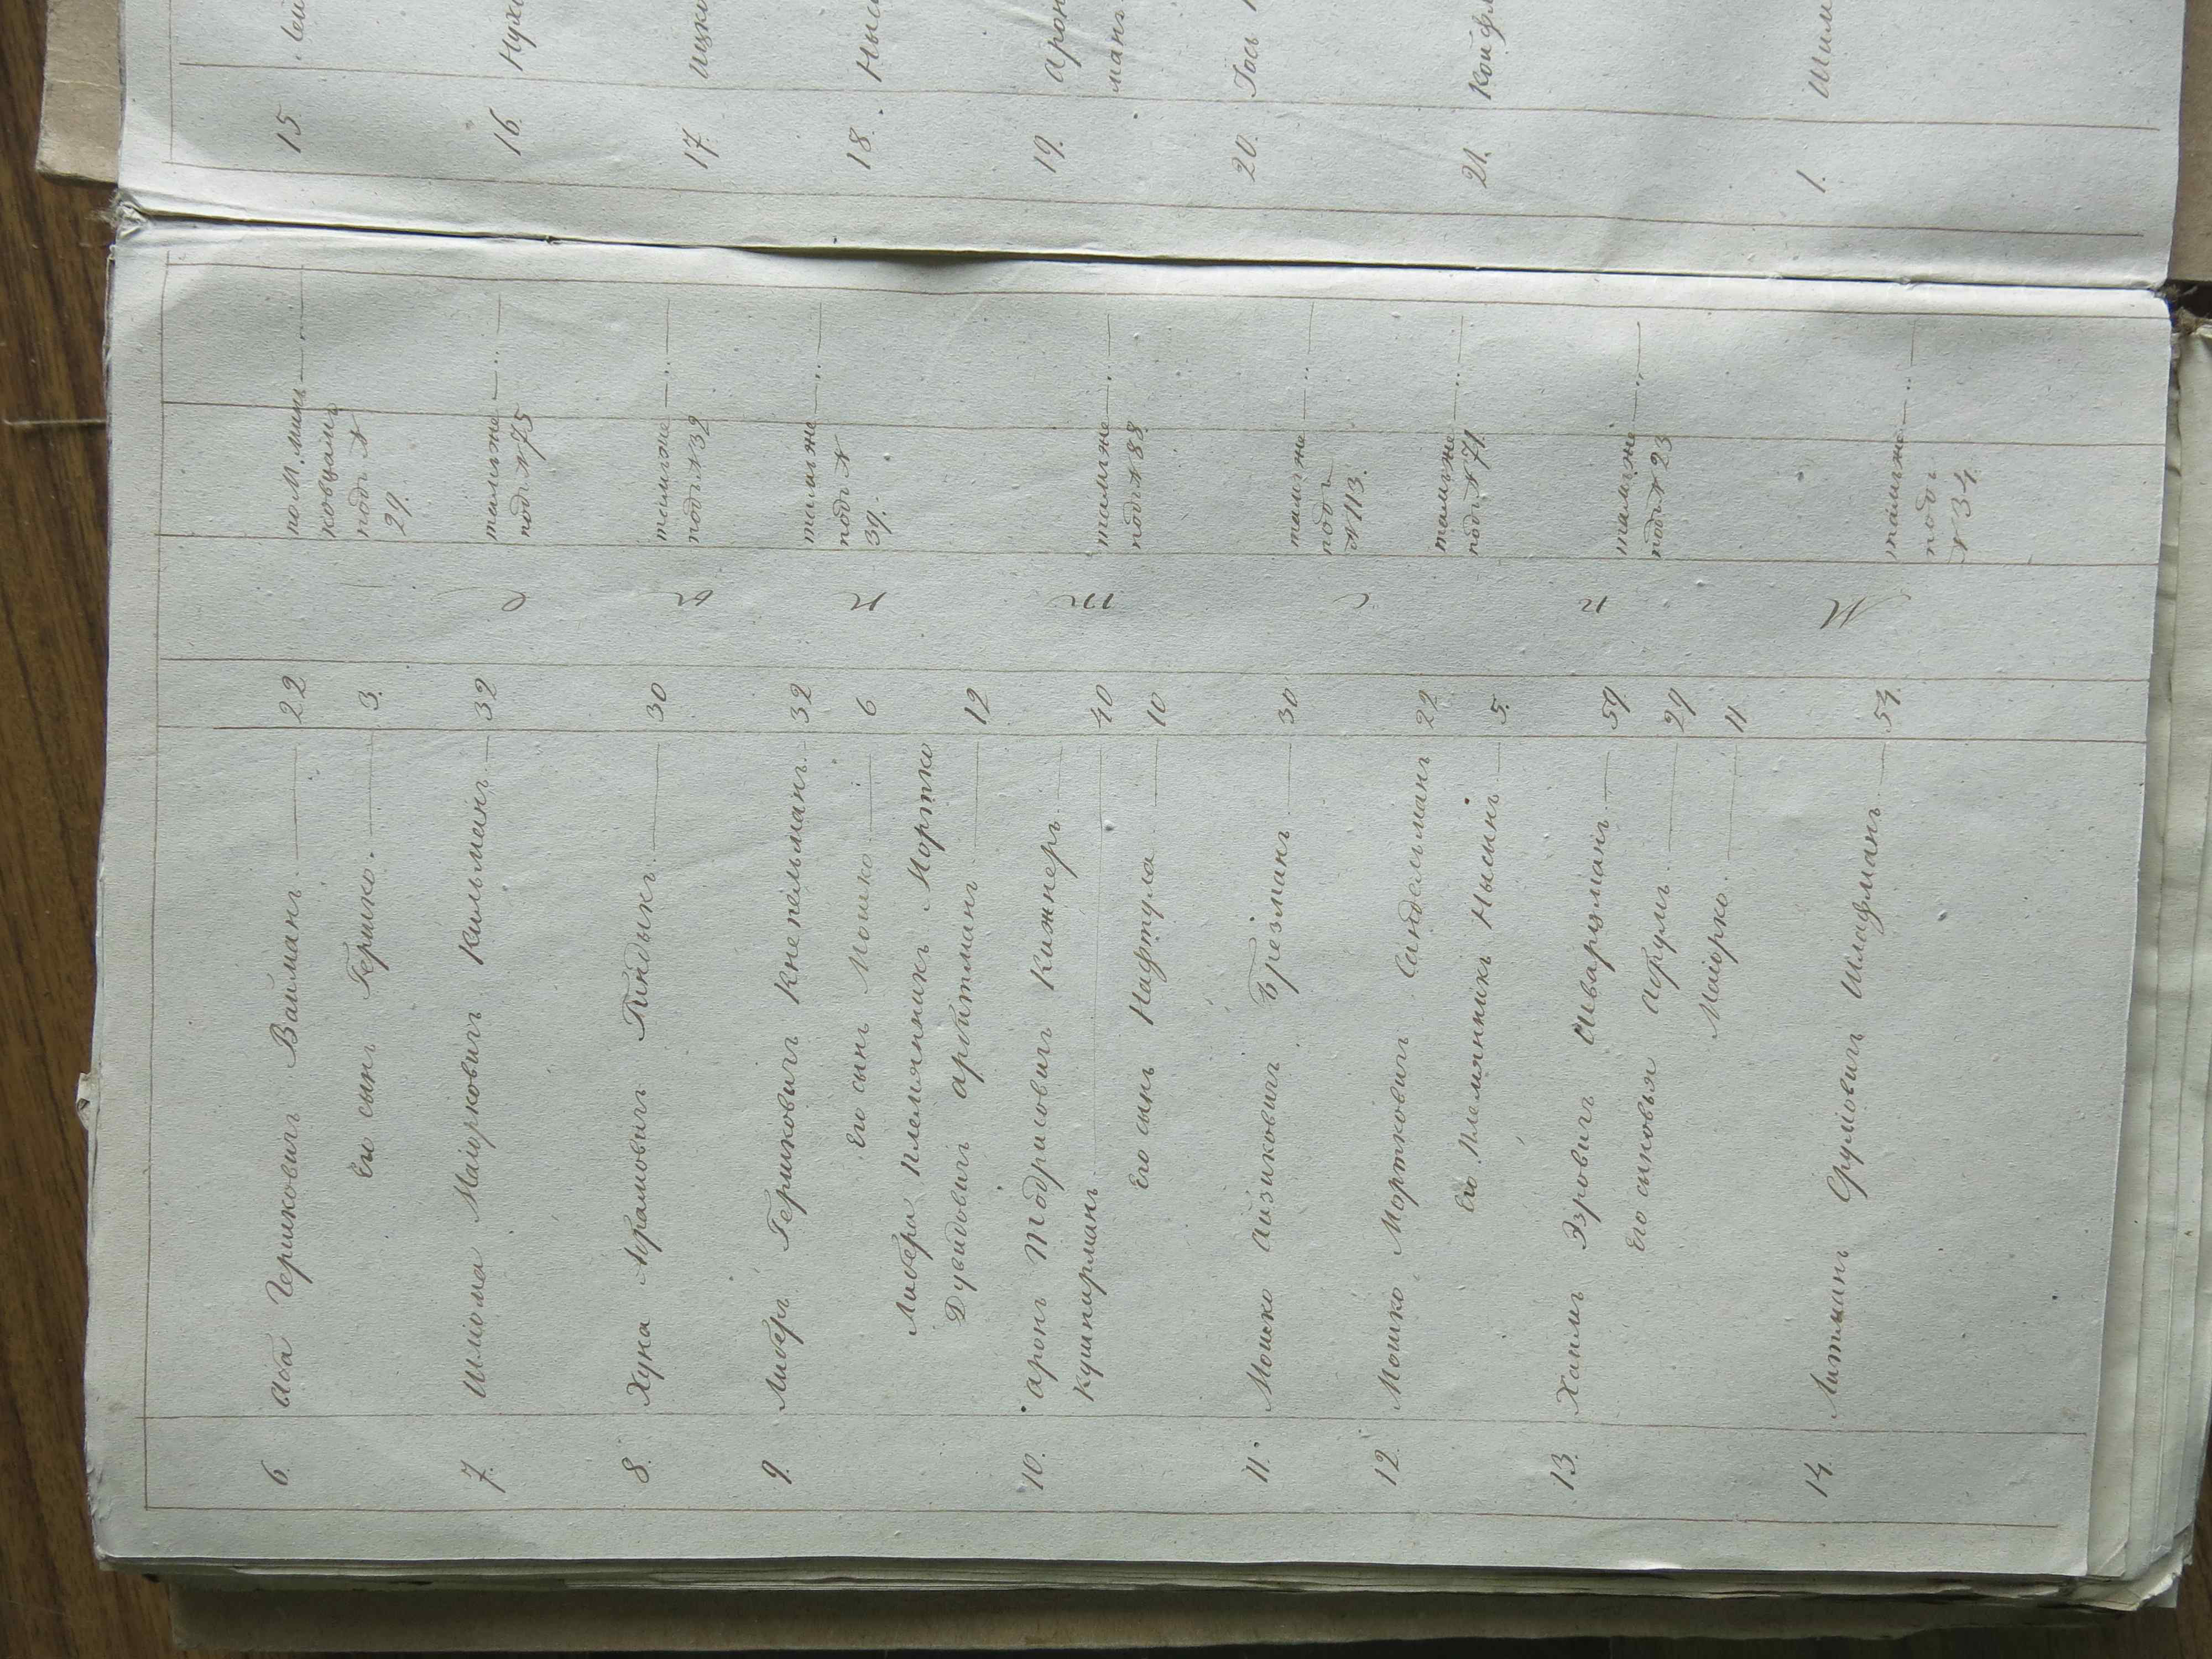 6. Аба Гершковичъ Вайманъ. 22 по М. Минь-
ковцамъ
подъ №
29.
Его сынъ Гершко. 3.
7. Шліома Маіорковичъ Кильманъ 32 тамъже
подъ №75
8. Хуна Абрамовичъ Гиндыкъ. 30 тамъже
подъ №39
9. Либеръ Гершковичъ Кнепельманъ 32 тамъже
подъ №
39.
Его сынъ Мошко 6
Либера Племянникъ Мортко
Дувидовичъ 12
10. Аронъ Тодрисовичъ Кижнеръ
Кушнирманъ 40 тамъже
подъ №88
Его сынъ Нафтула 10
11. Мошко Айзиковичъ Брезманъ 30 тамъже
подъ
№113.
12. Мошко Мортковичъ Сандельманъ 22 тамъже
подъ №71.
Его Племянникъ Нысынъ 5.
13. Хаимъ Эзровичъ Шварцманъ 59 тамъже
подъ №23
Его сыновья Абрумъ 29
Маіорко. 11
14. Литманъ Срулювичъ Шлафманъ 54. тамъже
подъ
№34.
15
16. Нухи
17.
18. Ныс
19. Арон
манъ
20. Іось
21. Койф
1. Шлим